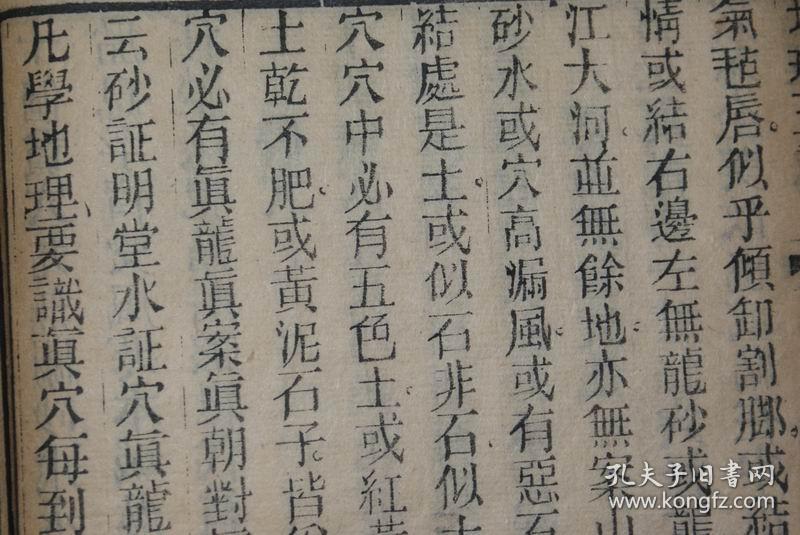 氣毡唇。似乎傾卸割脚。或結
情或結右邊左無龍砂或龍
江大河。並無餘地。亦無案山
砂水或穴高漏風。或有惡石
結處是土。或似石非石。似土
穴穴中必有五色土。或紅黃
土乾不肥。或黃泥石子。皆
穴必有眞龍眞案眞朝對
云砂証明堂水証穴眞龍
凡學地理、要識眞穴每到
孔夫子旧书网
www.kongfz.com